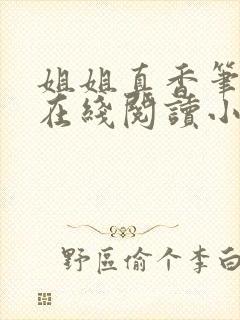 姐姐直香筆
在綫閱讀小
野區偷个李白